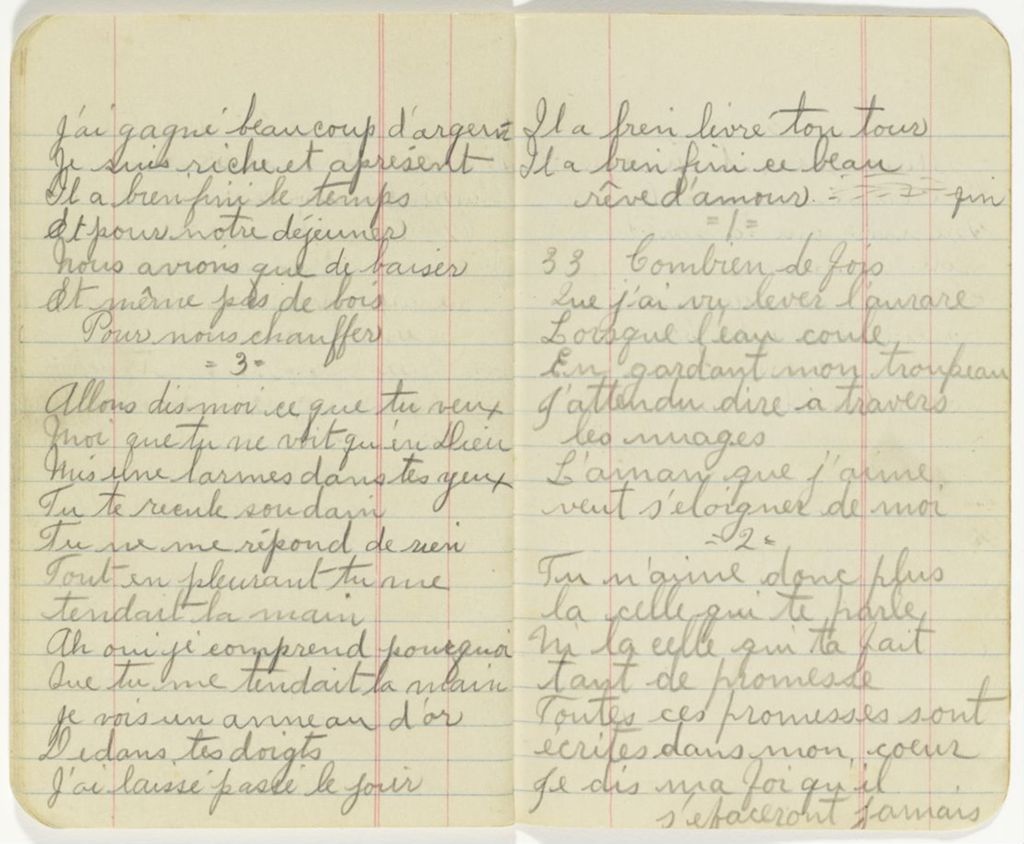 J'ai gagné beaucoup d'argent
Je suis riche et aprésent
Il a bien fini le temps
Et pour notre déjeuner
Nous avions que de baiser
Et même pas de bois
Pour nous chauffer
= 3 =
Allons dis moi ce que tu veux
Moi que tu ne voit qu'en Dieu
Mis une larmes dans tes yeux
Tu te recule soudain
Tu ne me répond de rien
Tout en pleurant tu me
tendait la main
Ah oui je comprend pourquoi
Que tu me tendait la main
je vois un anneau d'or
Dedans tes doigts
J'ai laissé passé le jour
Il a livre ton tour
Il a bien fini ce beau
rêve d'amour. fin
= 1 =
33 Combien de fois
Que j'ai vu lever l'aurare
Lorsque l'eau coule
En gardant mon troupeau
J'attendu dire a travers
les nuages
L'aman que j'aime
veut s'eloigner de moi
= 2 =
Tu n'aime donc plus
la celle qui te parle
Ni la celle qui ta fait
tant de promesse
Toutes ces promesses sont
écrites dans mon coeur
Je dis ma foi qu'il
s'efaceront jamais